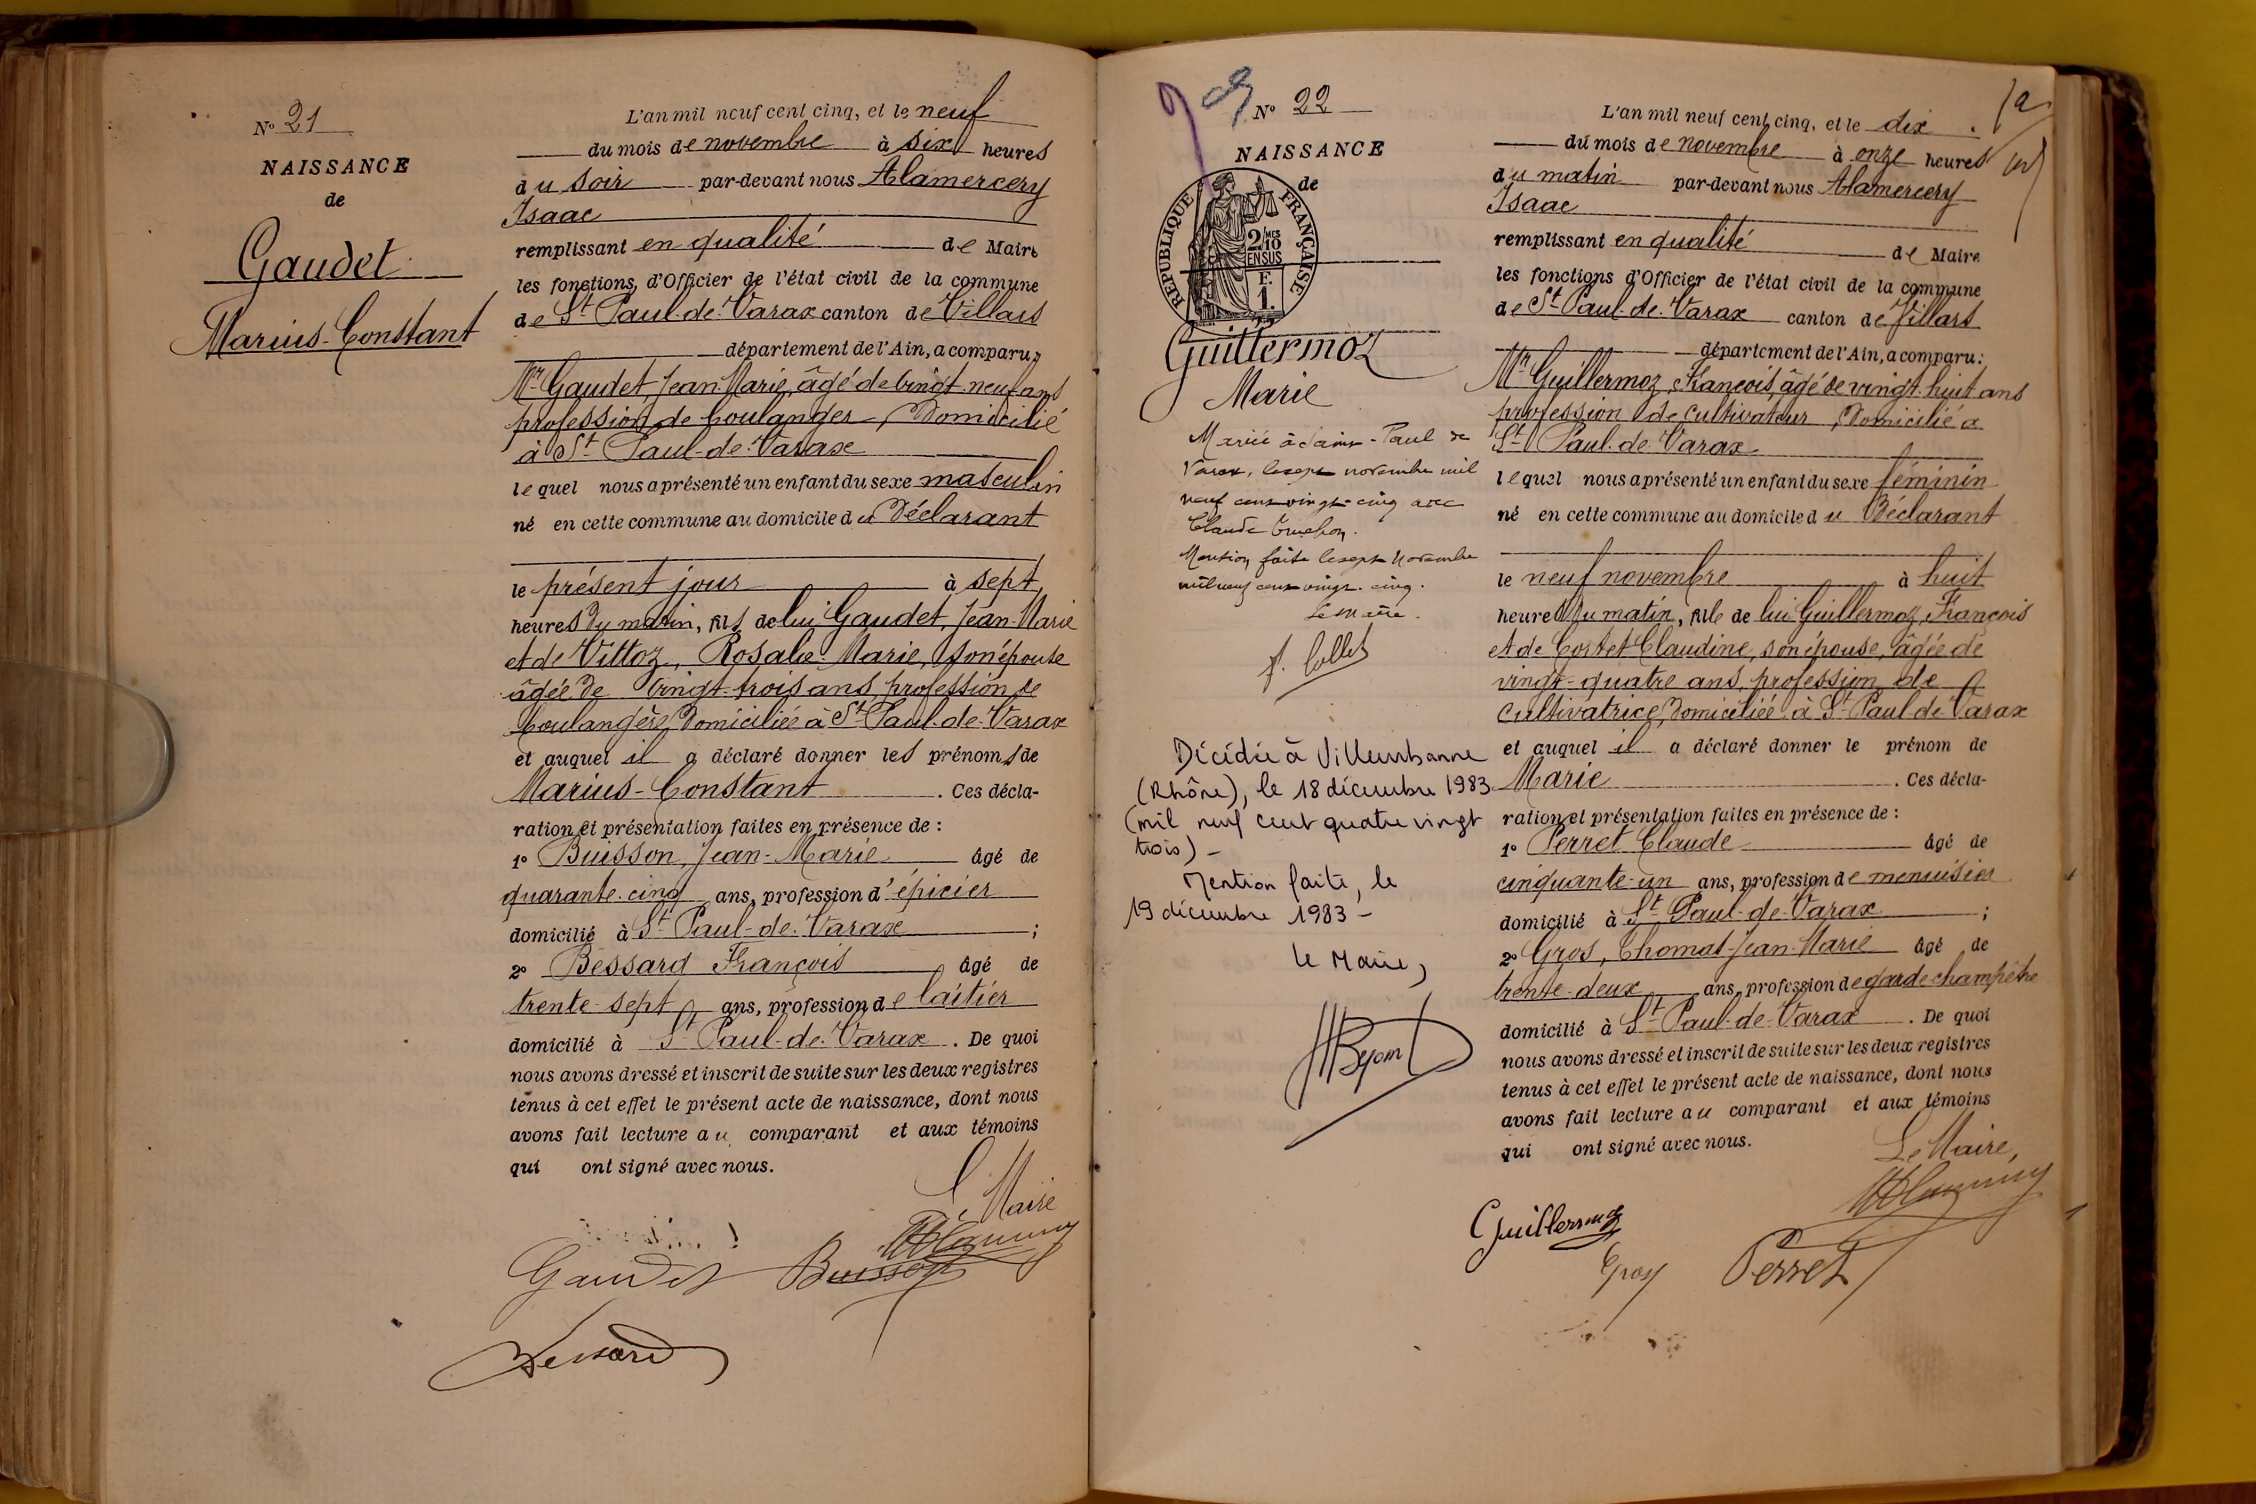 Nº 21
NAISSANCE
de
Gaudet
Marius-Constant
L'an mil neuf cent cinq, et le neuf
du mois de novembre à six heures
du soir par-devant nous Alamercery
Isaac
remplissant en qualité de Maire
les fonctions d'Officier de l'état civil de la commune
de St Paul-de-Varax canton de Villars
département de l'Ain, a comparu
Mr Gaudet, Jean-Marie, âgé de vingt-neuf ans
profession de boulanger, domicilié
à St Paul-de-Varax
lequel nous a présenté un enfant du sexe masculin
né en cette commune au domicile du Déclarant
le présent jour à sept
heures du matin, fils de lui Gaudet, Jean-Marie
et de Vittoz, Rosalie-Marie, son épouse
âgée de vingt-trois ans, profession de
boulangère, domiciliée à St Paul-de-Varax
et auquel il a déclaré donner les prénoms de
Marius-Constant. Ces décla-
ration et présentation faites en présence de :
1º Buisson, Jean-Marie âgé de
quarante-cinq ans, profession d'épicier
domicilié à St Paul-de-Varax ;
2º Bessard François âgé de
trente-sept ans, profession de laitier
domicilié à St Paul-de-Varax. De quoi
nous avons dressé et inscrit de suite sur les deux registres
tenus à cet effet le présent acte de naissance, dont nous
avons fait lecture au comparant et aux témoins
qui ont signé avec nous.
Le Maire
Gaudet Buisson
Bessard
Nº 22
NAISSANCE
de
RÉPUBLIQUE FRANÇAISE
2/MES
10
EN SUS
F.
1.
Guillermoz
Marie
Mariée à Saint-Paul de
Varax, le sept novembre mil
neuf cent vingt-cinq avec
Claude
Mention faite le sept Novembre
mil neuf cent vingt-cinq.
Le Maire.
Collet
Décédée à Villeurbanne
(Rhône), le 18 décembre 1983
(mil neuf cent quatre vingt
trois) -
Mention faite, le
19 décembre 1983 -
Le Maire,
L'an mil neuf cent cinq, et le dix
du mois de novembre à onze heures
du matin par-devant nous Alamercery
Isaac
remplissant en qualité de Maire
les fonctions d'Officier de l'état civil de la commune
de St Paul-de-Varax canton de Villars
département de l'Ain, a comparu :
Mr Guillermoz, François, âgé de vingt-huit ans
profession de cultivateur, domicilié à
St Paul-de-Varax
lequel nous a présenté un enfant du sexe féminin
né en cette commune au domicile du Déclarant
le neuf novembre à huit
heures du matin, fille de lui Guillermoz, François
et de Cortet Claudine, son épouse, âgée de
vingt-quatre ans, profession de
cultivatrice, domiciliée à St Paul-de-Varax
et auquel il a déclaré donner le prénom de
Marie. Ces décla-
ration et présentation faites en présence de :
1º Perret Claude âgé de
cinquante-un ans, profession de menuisier
domicilié à St Paul-de-Varax ;
2º Gros, Thomas-Jean-Marie âgé de
trente-deux ans, profession de garde champêtre
domicilié à St Paul-de-Varax. De quoi
nous avons dressé et inscrit de suite sur les deux registres
tenus à cet effet le présent acte de naissance, dont nous
avons fait lecture au comparant et aux témoins
qui ont signé avec nous.
Le Maire,
Guillermoz
Gros Perret